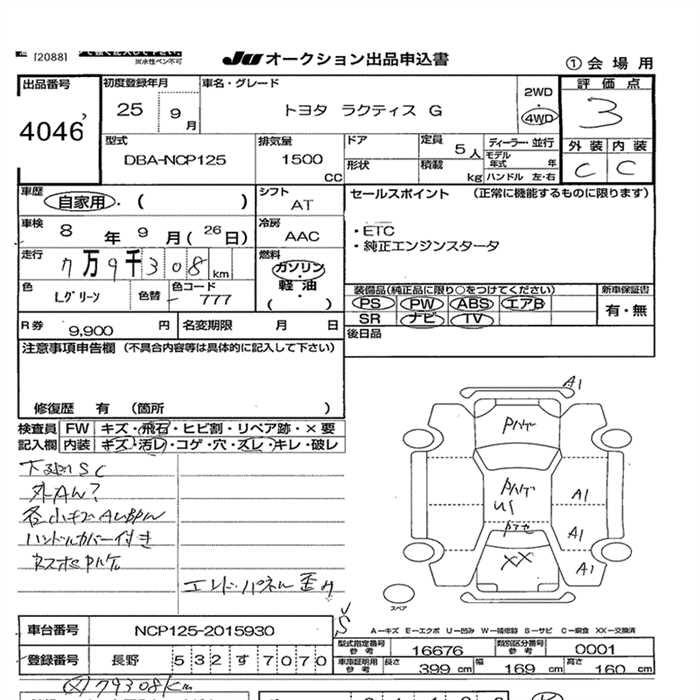 [2088]
※水性ペン不可
JU オークション出品申込書
① 会場用
出品番号
4046
初度登録年月
25 9月
車名・グレード
トヨタ ラクティス G
2WD
4WD
評価点
3
外装 内装
C C
型式
DBA-NCP125
排気量
1500 CC
ドア
形状
定員
5人
積載
kg
ディーラー・並行
モデル年式 年
ハンドル 左・右
車歴
自家用・( )
シフト
AT
セールスポイント (正常に機能するものに限ります)
・ETC
・純正エンジンスタータ
車検
8年 9月(26日)
冷房
AAC
走行
7万9千308km
燃料
ガソリン・
軽油・
( )
色
Lグリーン
色替
色コード
777
装備品(純正品に限り○をつけてください)
PS PW ABS エアB
SR ナビ TV
新車保証書
有・無
R券
9,900円
名変期限 月 日
後日品
注意事項申告欄 (不具合内容等は具体的に記入して下さい)
修復歴 有 (箇所 )
検査員
記入欄
FW キズ・飛石・ヒビ割・リペア跡・×要
内装 キズ・汚レ・コゲ・穴・スレ・キレ・破レ
外Aん?
ハンドルカバー付き
エンドパネル歪み
A1
Pハゲ
Pハゲ
US
A1
A1
A1
XX
スペア
A－キズ E－エクボ U－凹み W－補修跡 S－サビ C－腐食 XX－交換済
車台番号
NCP125-2015930
型式指定番号 参考
16676
類別区分番号 参考
0001
登録番号
長野 532 す 7070
車庫証明用 参考
長さ 399 cm
幅 169 cm
高さ 160 cm
79308Km